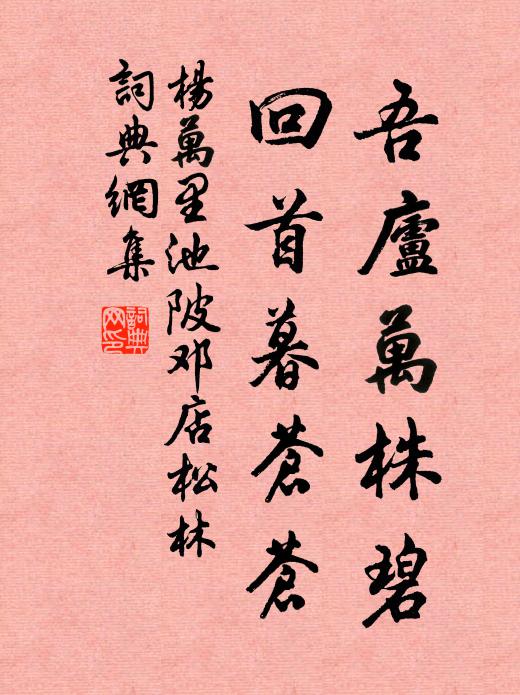 吾廬萬株碧
回首暮蒼蒼
楊萬里池陂邓店松林
詞典網集
詞典网印